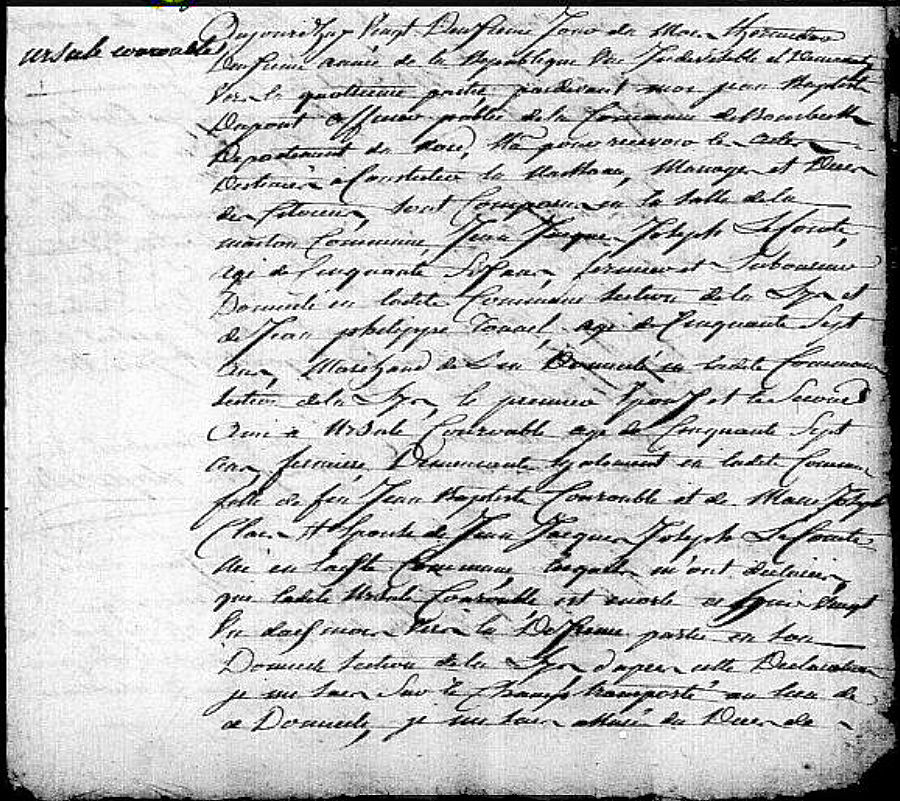 ursule couvouble
Dujourdhuy Vingt Deuxieme Jour du Mois Thermidor
Deuxieme année de la Republique Une Indivisible et Democrate
Vers la quattrieme partie pardevant moi jean Baptiste
Dupont officier public de la Commune de
Departement du Nord, pour recevoir les actes
Destinés a Constater la Naissance, Mariages et Deces
des Citoiens, sont Comparus en la Salle de la
maison Commune, Jean Jacque Joseph LeComte,
agé de Cinquante Six ans, fermier et Laboureur
Domicilié en ladite Commune Section de la et
de Jean philippe agé de Cinquante Sept
ans, Marchand de Lin Domicilié en ladite Commune
Section de la le premier Epoux et le Second
Ami a Ursule Couvouble agé de Cinquante Sept
ans fermiere Demeurante Egalement en ladite Commune
fille de feu Jean Baptiste Couvouble et de Marie Joseph
Epouse de Jean Jacque Joseph LeComte
Née en ladite Commune lesquels m'ont declarés
que ladite Ursule Couvouble est morte Vingt
Un dudit mois Vers la Dixieme partie en son
Domicile Section de la d'apres cette Declaration
je me suis Sur le Champ transporté au lieu de
ce Domicile, je me suis assuré du Deces de